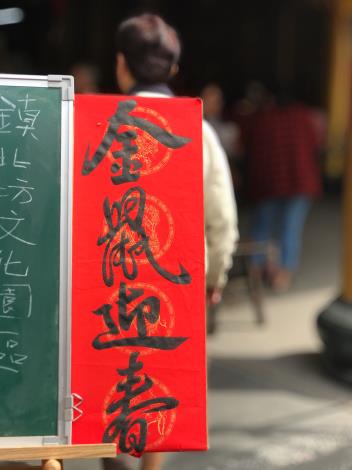 鎮北坊文化園區
金鼠迎春